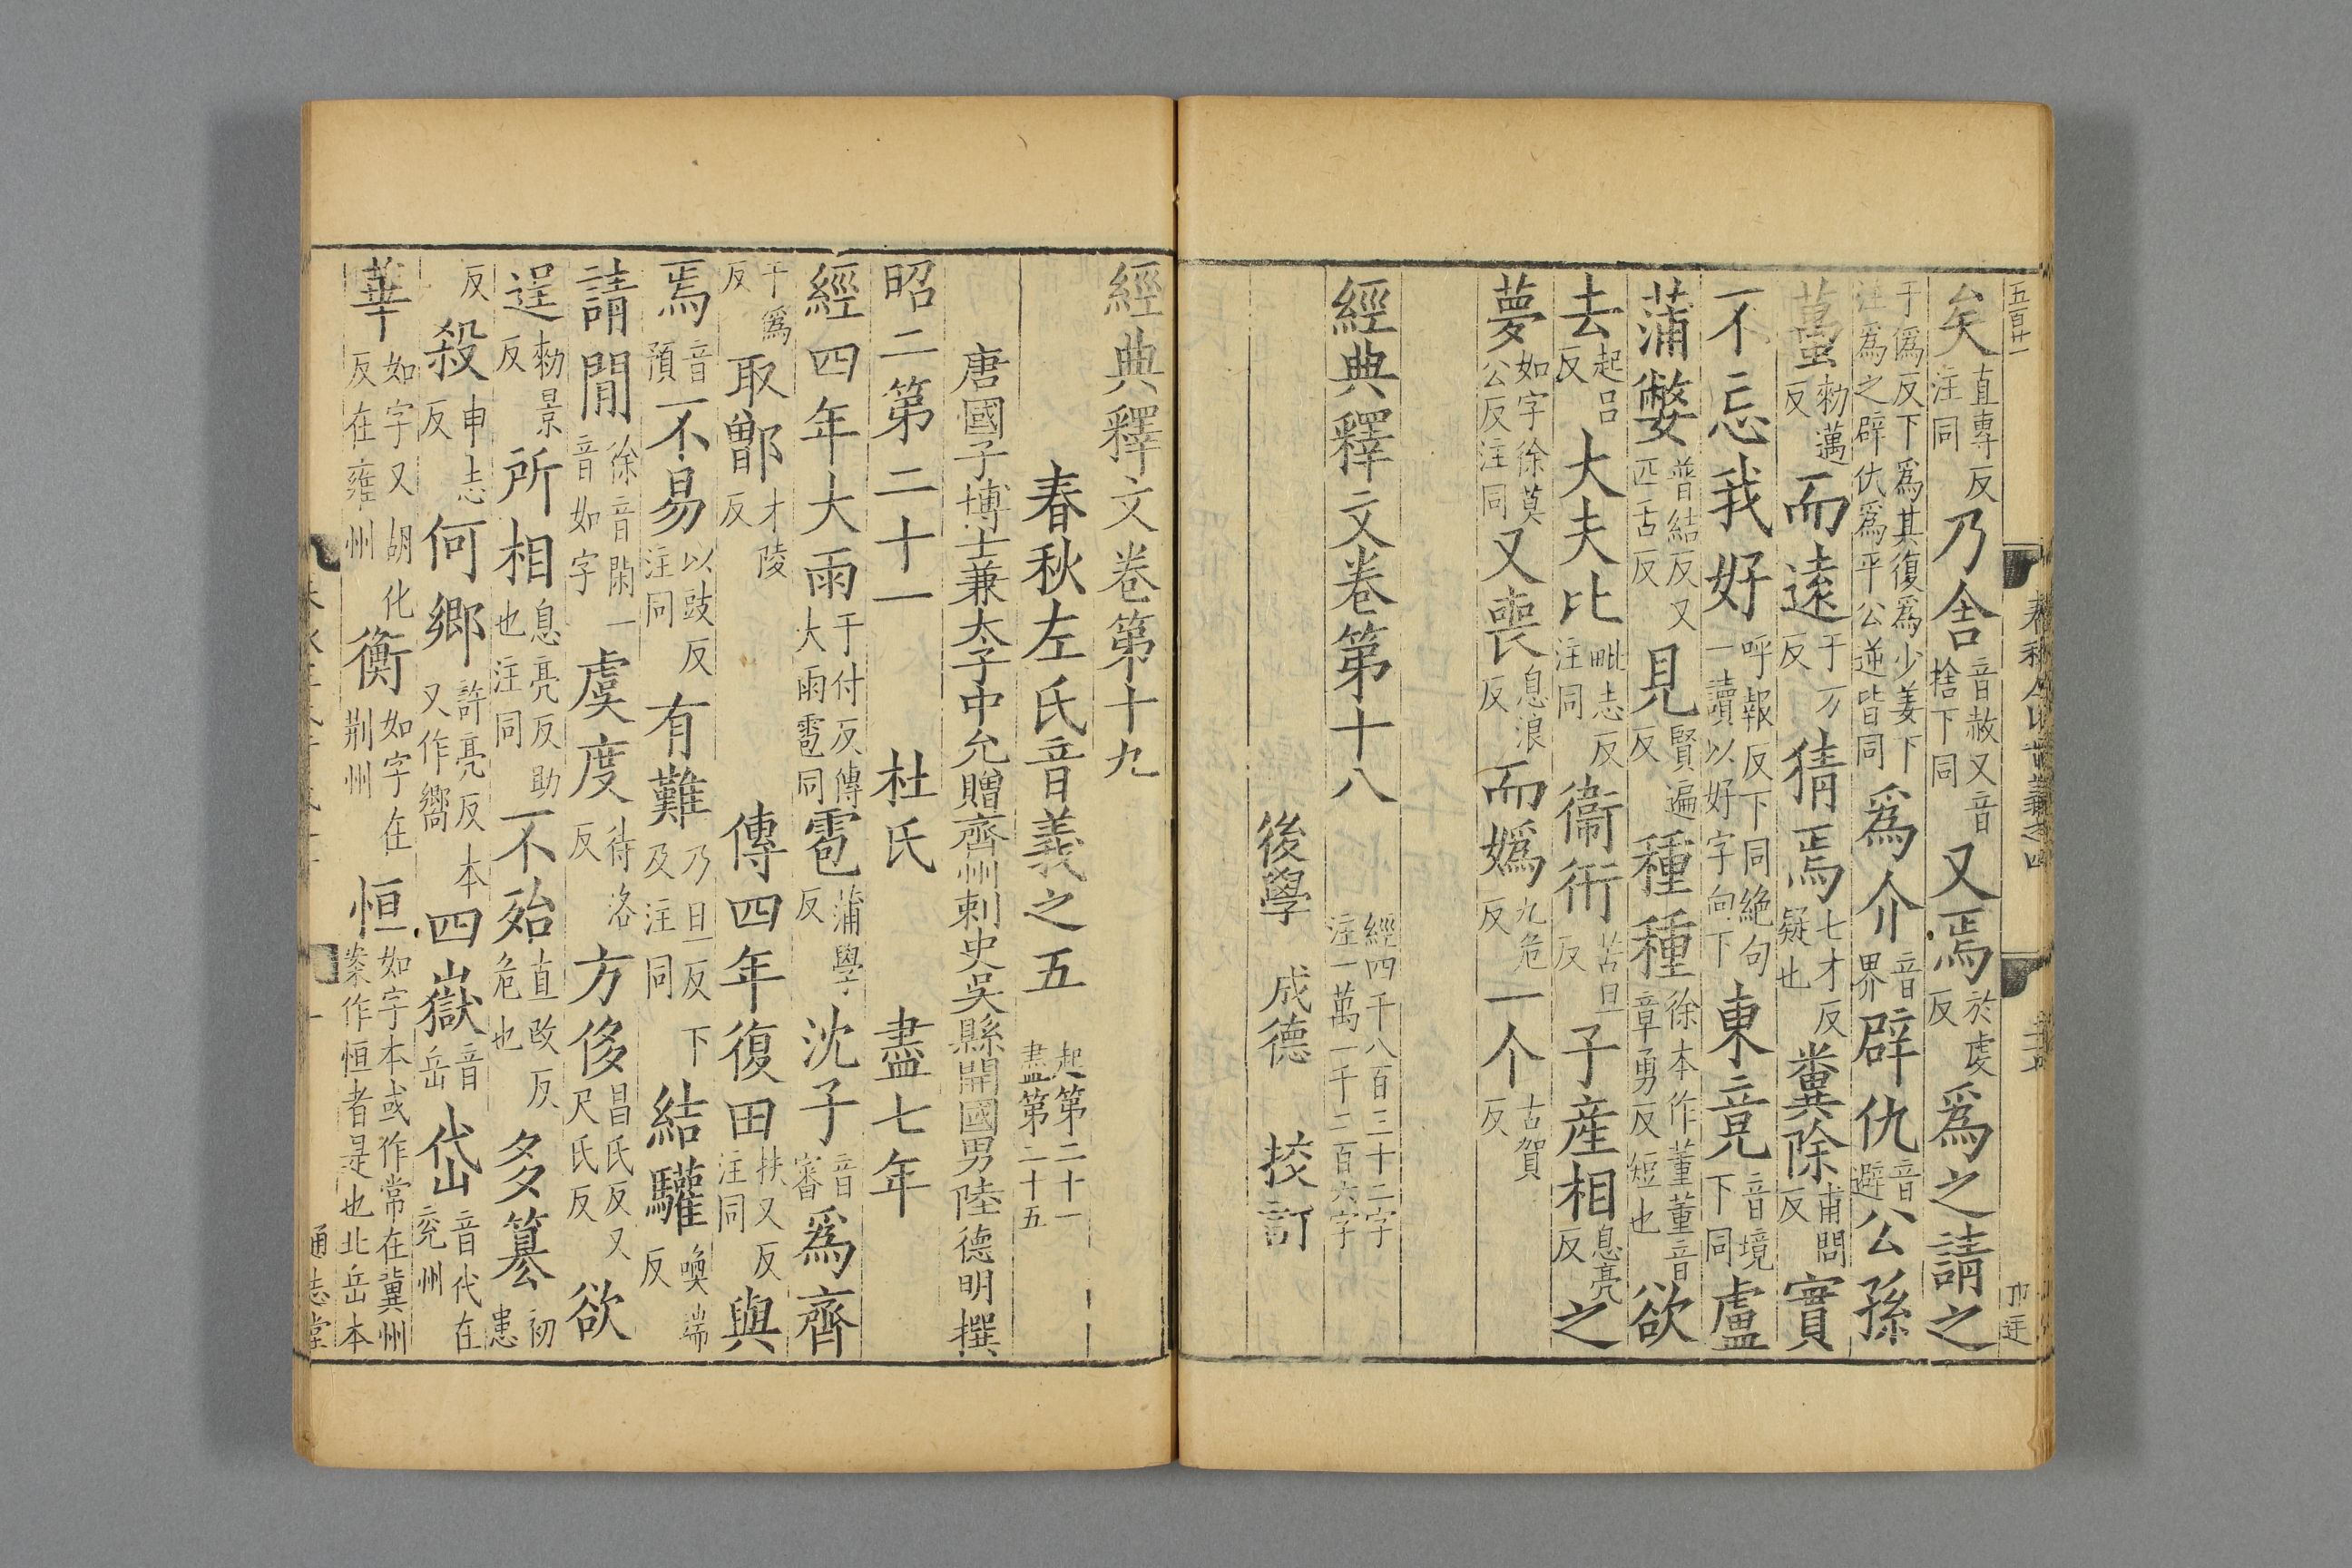 五百廿一
矣直專反注同乃舍音赦又音捨下同又焉於虔反爲之請之
于僞反下爲其復爲少姜下注爲之辟仇爲平公逆皆同爲介音界辟仇音避公孫
蠆勑邁反而遠于万反猜焉七才反疑也糞除甫問反實
不忘我好呼報反下同絶句一讀以好字向下東竟音境下同盧
蒲嫳普結反又匹舌反見賢遍反種種徐本作董董音章勇反短也欲
去起呂反大夫比毗志反注同衞衎苦旦反子産相息亮反之
夢如字徐莫公反注同又喪息浪反而嬀九危反一个古賀反
經典釋文卷第十八經四千八百三十二字注一萬一千二百六字
後學 成德 挍訂
經典釋文卷第十九
春秋左氏音義之五起第二十一盡第二十五
唐國子博士兼太子中允贈齊州刺史吳縣開國男陸德明撰
昭二第二十一 杜氏 盡七年
經四年大雨于付反傳大雨雹同雹蒲學反沈子音審爲齊
于爲反取鄫才陵反 傳四年復田扶又反注同與
焉音預不易以豉反注同有難乃旦反下及注同結驩喚端反
請閒徐音閑一音如字虞度待洛反方侈昌氏反又尺氏反欲
逞勑景反所相息亮反助也注同不殆直改反危也多篡初患
反殺申志反何鄉許亮反本又作嚮四嶽音岳岱音代在兖州
華如字又胡化反在雍州衡如字在荆州恒如字本或作常在冀州案作恒者是也北岳本
通志堂